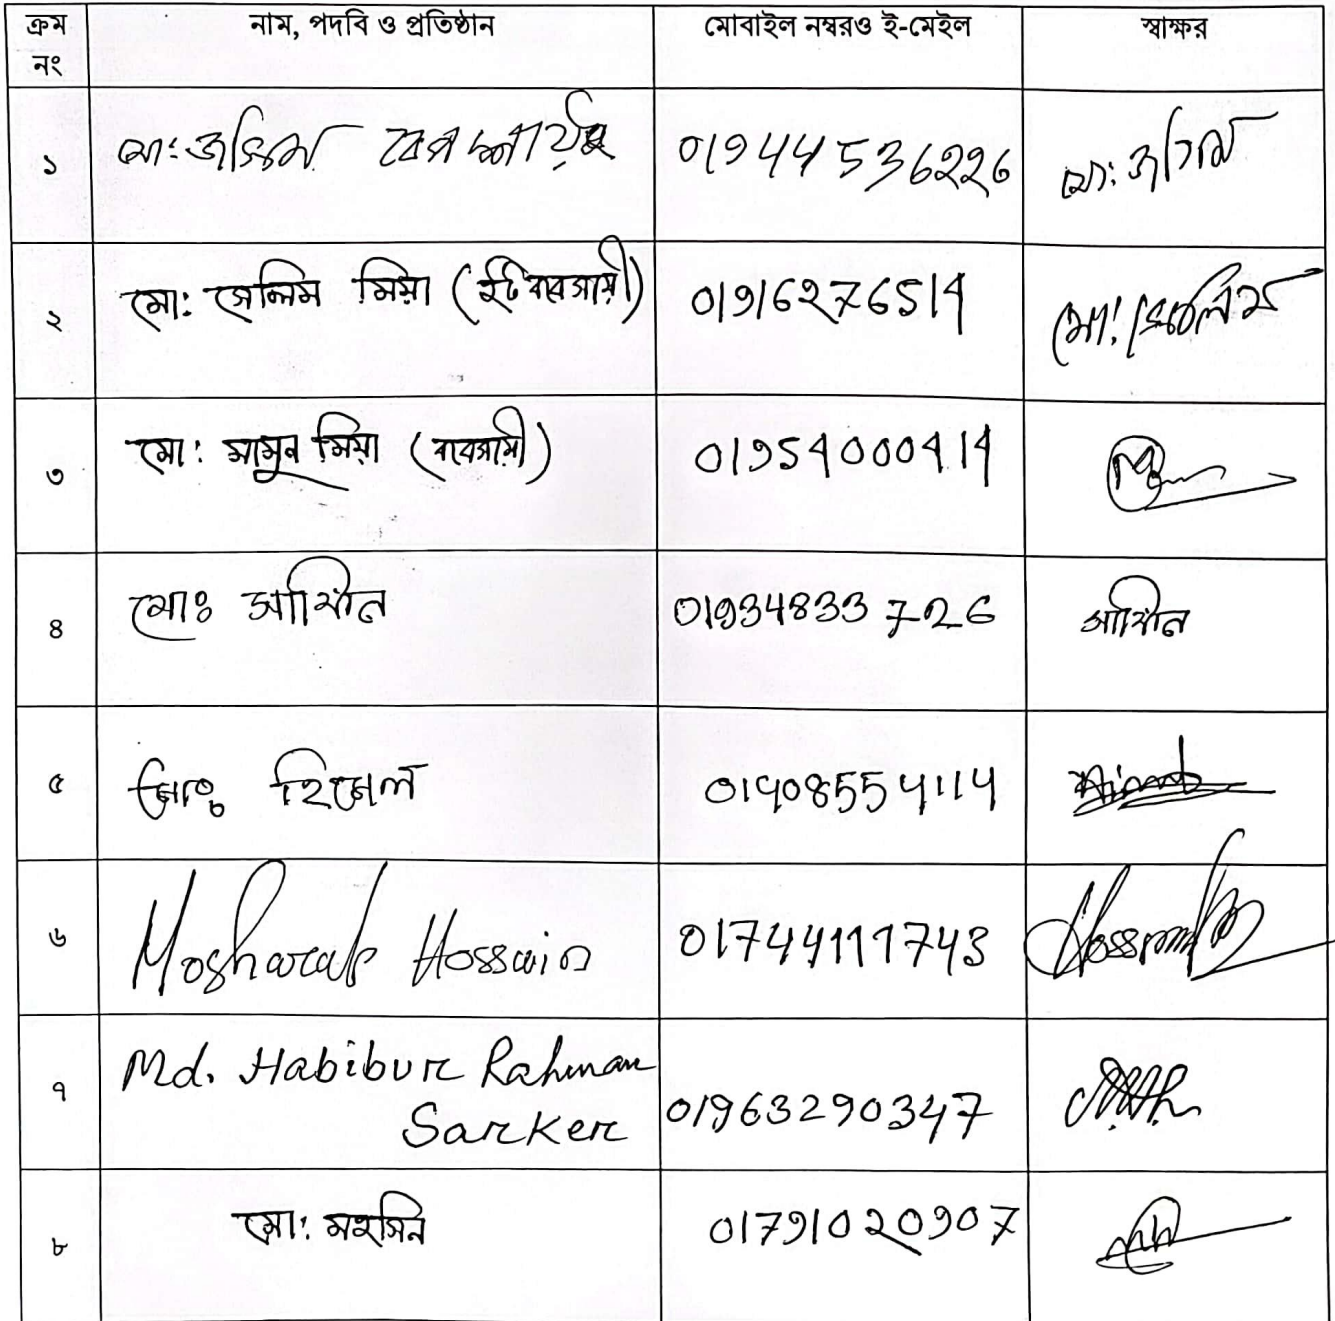 ক্রম নং
নাম, পদবি ও প্রতিষ্ঠান
মোবাইল নম্বরও ই-মেইল
স্বাক্ষর
১
মো: জসিম
01944536226
মো: জসিম
২
মো: সেলিম মিয়া (ইট ব্যবসায়ী)
01916276514
মো: সেলিম
৩
মো: মামুন মিয়া (ব্যবসায়ী)
01954000414
৪
মোঃ
01934833726
৫
মোঃ হিমেল
01408554114
৬
Mosharaf Hossain
01744111743
৭
Md. Habibur Rahman
Sarker
01963290347
৮
মো: মহসিন
01791020907